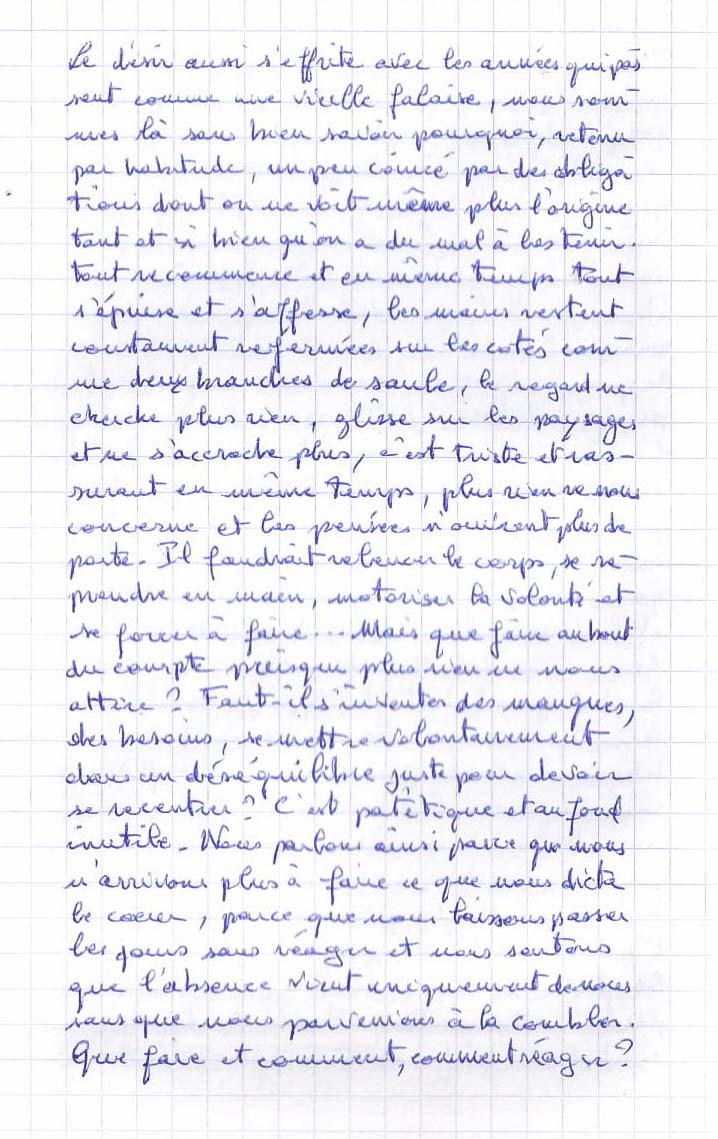 Le désir aussi s'effrite avec les années qui pas
sent comme une vieille falaise, nous som-
mes là sans bien savoir pourquoi, retenu
par habitude, un peu coincé par des obliga
tions dont on ne voit même plus l'origine
tant et si bien qu'on a du mal à les tenir.
tout recommence et en même temps tout
s'épuise et s'affesse, les mains restent
constamment refermées sur les cotés com-
me deux branches de saule, le regard ne
cherche plus rien, glisse sur les paysages
et ne s'accroche plus, c'est triste et ras-
surant en même temps, plus rien ne nous
concerne et les pensées n'ouvrent plus de
porte. Il faudrait relancer le corps, se re-
prendre en main, motoriser la volonté et
se forcer à faire... Mais que faire au bout
du compte puisque plus rien ne nous
attire ? Faut-il s'inventer des manques,
des besoins, se mettre volontairement
dans un déséquilibre juste pour devoir
se recentrer ? C'est patétique et au fond
inutile. Nous parlons ainsi parce que nous
n'arrivons plus à faire ce que nous dicta
le coeur, parce que nous laissons passer
les jours sans réagir et nous sentons
que l'absence vient uniquement de nous
sans que nous parvenions à la combler.
Que faire et comment, comment réagir ?